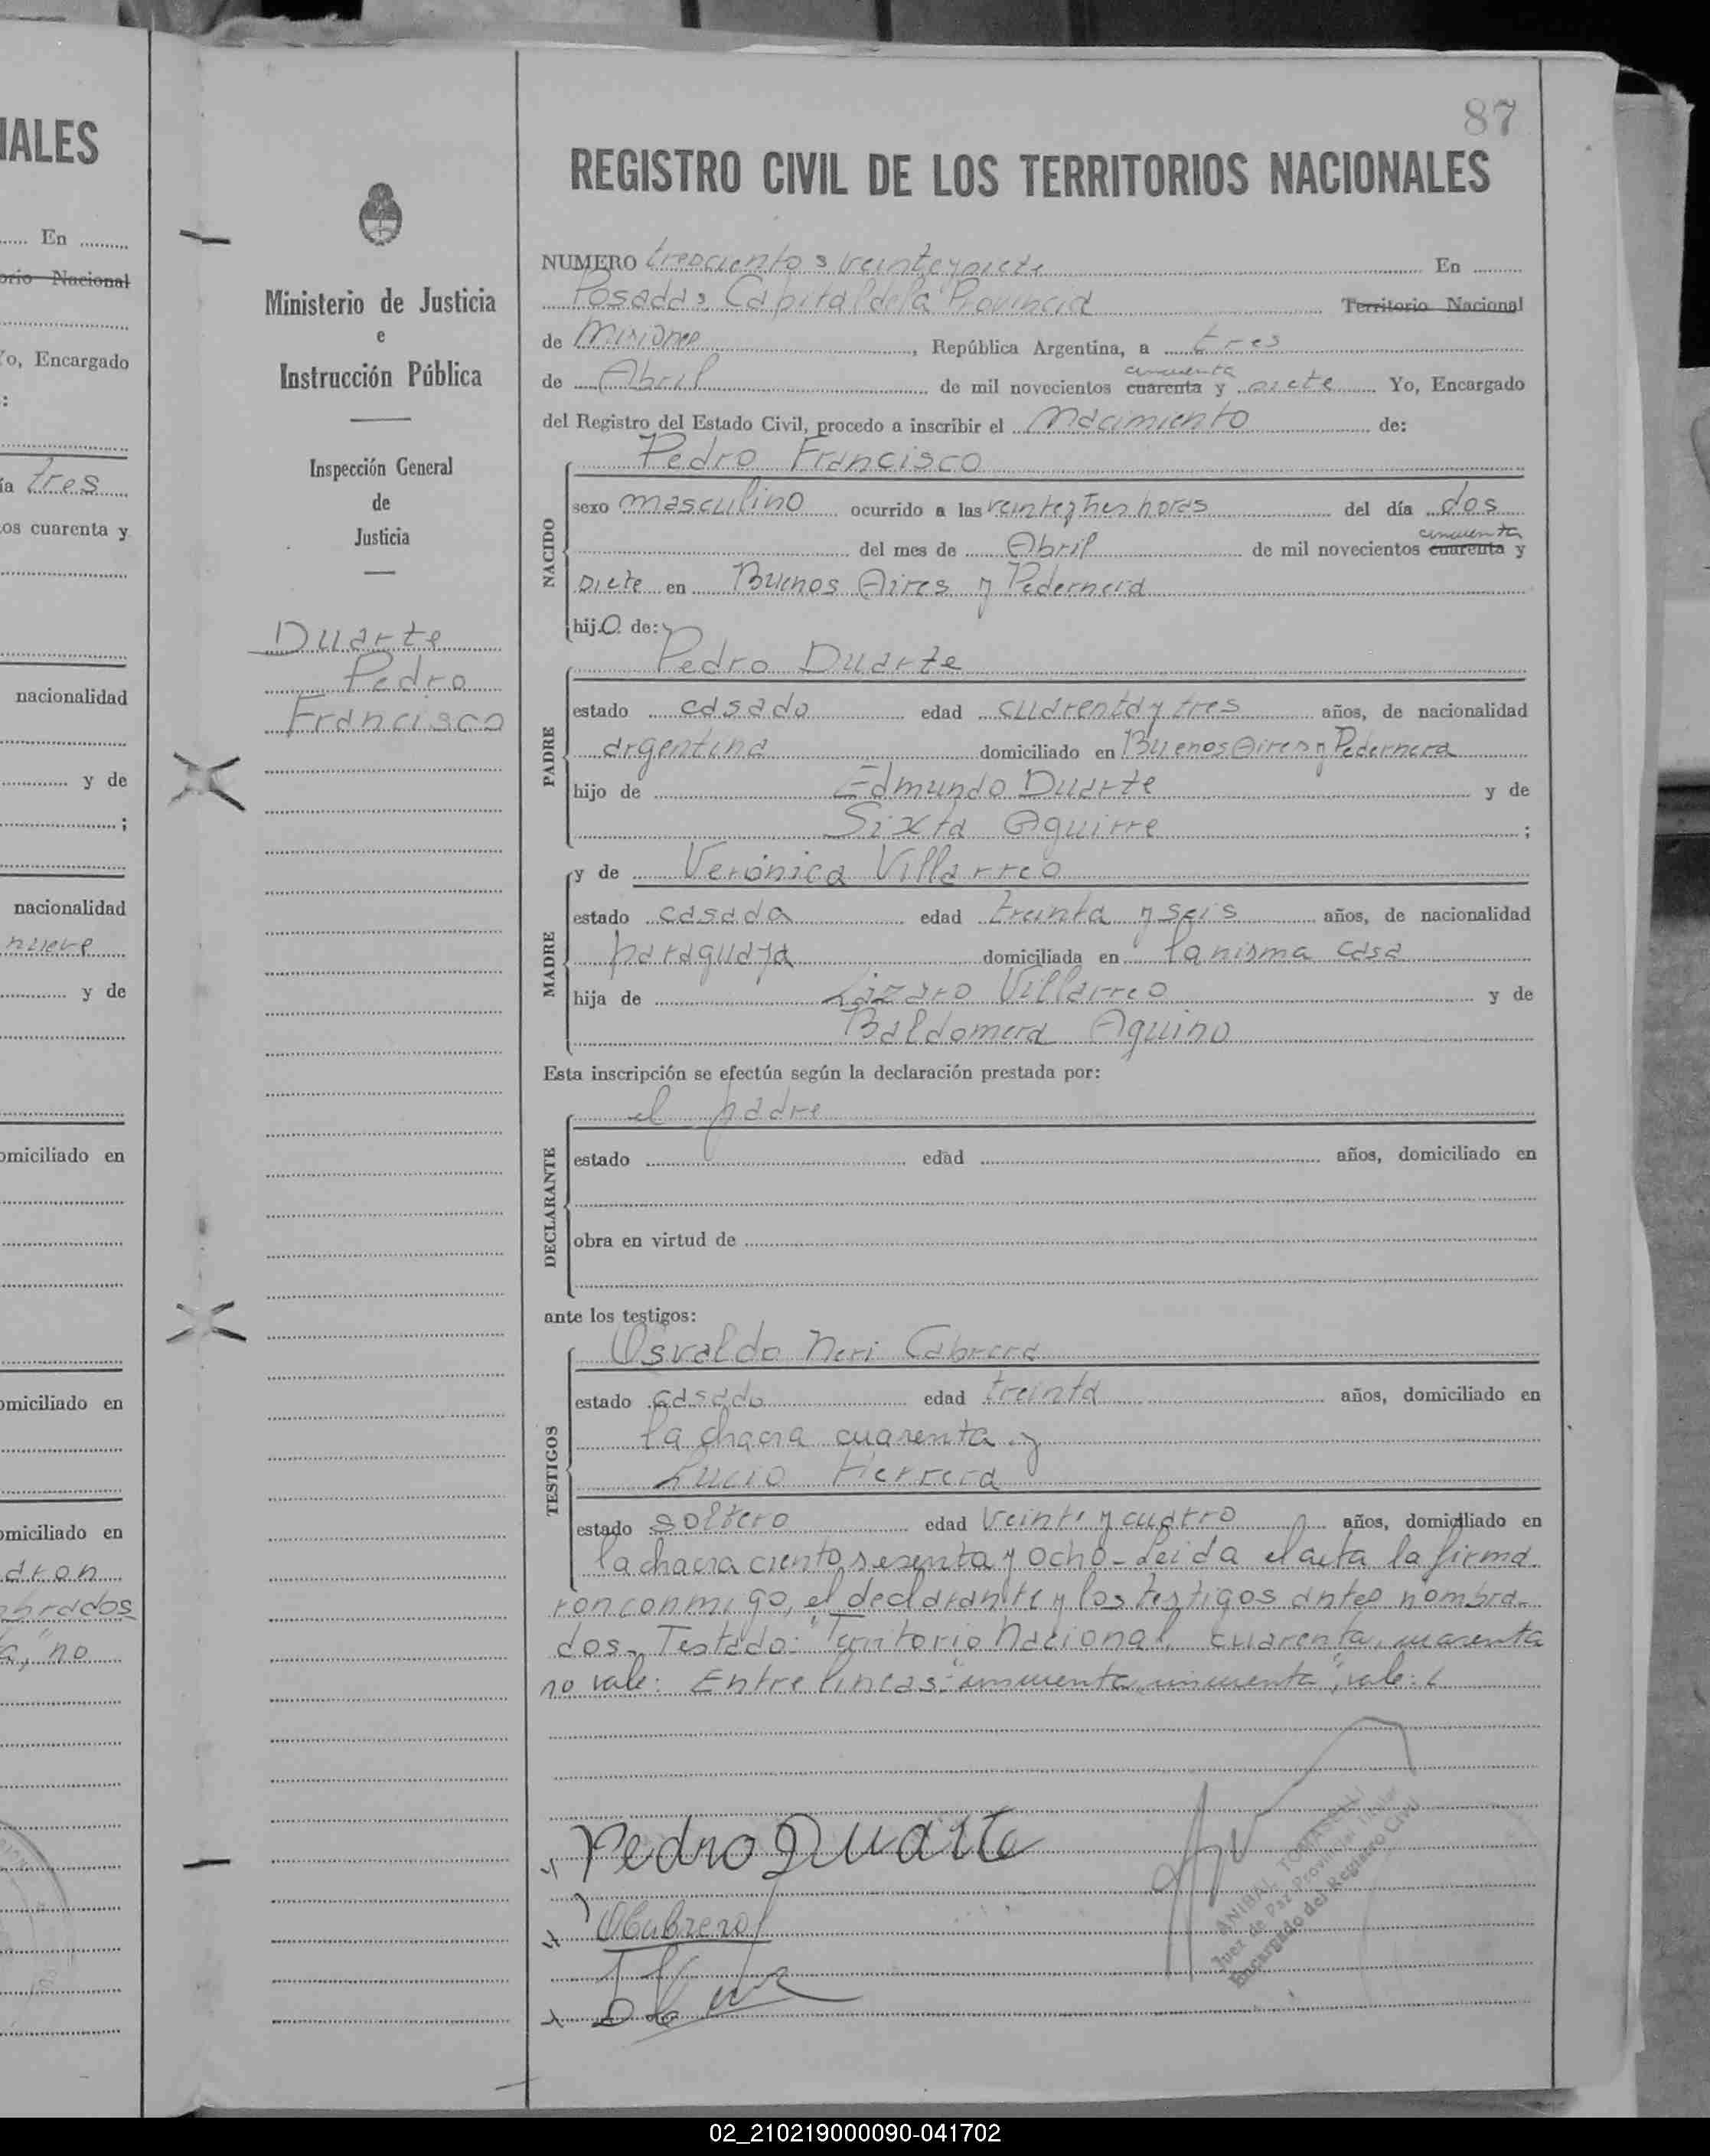 IALES
En
orio Nacional
Yo, Encargado
:
ía tres
os cuarenta y
nacionalidad
y de
;
nacionalidad
nueve
y de
omiciliado en
omiciliado en
omiciliado en
dron
mbrados
no
Ministerio de Justicia
e
Instrucción Pública
Inspección General
de
Justicia
Duarte
Pedro
Francisco
87
REGISTRO CIVIL DE LOS TERRITORIOS NACIONALES
NUMERO trescientos veinte y siete En
Posadas, Capital de la Provincia Territorio Nacional
de Misiones, República Argentina, a tres
cincuenta
de Abril de mil novecientos cuarenta y siete Yo, Encargado
del Registro del Estado Civil, procedo a inscribir el Nacimiento de:
Pedro Francisco
NACIDO
sexo masculino ocurrido a las veinte y tres horas del día dos
cincuenta
del mes de Abril de mil novecientos cuarenta y
siete en Buenos Aires y Pedernera
hijo de:
Pedro Duarte
PADRE
estado casado edad cuarenta y tres años, de nacionalidad
argentina domiciliado en Buenos Aires y Pedernera
hijo de Edmundo Duarte y de
Sixta Aguirre ;
y de Verónica Villarreo
MADRE
estado casada edad treinta y seis años, de nacionalidad
paraguaya domiciliada en la misma casa
hija de Lázaro Villarreo y de
Baldomera Aquino
Esta inscripción se efectúa según la declaración prestada por:
el padre
DECLARANTE
estado edad años, domiciliado en
obra en virtud de
ante los testigos:
Osvaldo Neri Cabrera
TESTIGOS
estado casado edad treinta años, domiciliado en
la chacra cuarenta y
Lucio Herrera
estado soltero edad veinte y cuatro años, domiciliado en
la chacra ciento sesenta y ocho - Leida el acta la firma
ron conmigo, el declarante y los testigos antes nombra-
dos - Testado: "Territorio Nacional, cuarenta, cuarenta
no vale: Entre lineas: "cincuenta, cincuenta", vale:
Pedro Duarte
OCabrera
ANIBAL TOMASELLI
Juez de Paz Provincial Titular
Encargado del Registro Civil
02_210219000090-041702